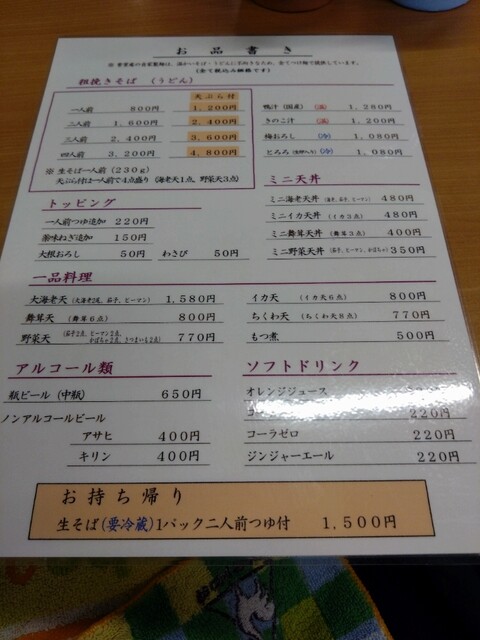 お品書き
(全て税込み価格です)
粗挽きそば (うどん)
天ぷら付
一人前 800円 1,200円
二人前 1,600円 2,400円
三人前 2,400円 3,600円
四人前 3,200円 4,800円
※ 生そば一人前(230g)
天ぷら付は一人前で4点盛り(海老天1点、野菜天3点)
鴨汁(国産) (温) 1,280円
きのこ汁 (温) 1,200円
梅おろし (冷) 1,080円
とろろ (冷) 1,080円
トッピング
一人前つゆ追加 220円
薬味ねぎ追加 150円
大根おろし 50円 わさび 50円
ミニ天丼
ミニ海老天丼 480円
ミニイカ天丼 (イカ3点) 480円
ミニ舞茸天丼 (舞茸3点) 400円
ミニ野菜天丼 (茄子、ピーマン、かぼちゃ) 350円
一品料理
大海老天 (大海老2尾、茄子、ピーマン) 1,580円
舞茸天 (舞茸6点) 800円
野菜天 (茄子2点、ピーマン2点、かぼちゃ2点、さつまいも2点) 770円
イカ天 (イカ天6点) 800円
ちくわ天 (ちくわ天8点) 770円
もつ煮 500円
アルコール類
瓶ビール (中瓶) 650円
ノンアルコールビール
アサヒ 400円
キリン 400円
ソフトドリンク
オレンジジュース
220円
コーラゼロ 220円
ジンジャーエール 220円
お持ち帰り
生そば(要冷蔵)1パック二人前つゆ付 1,500円